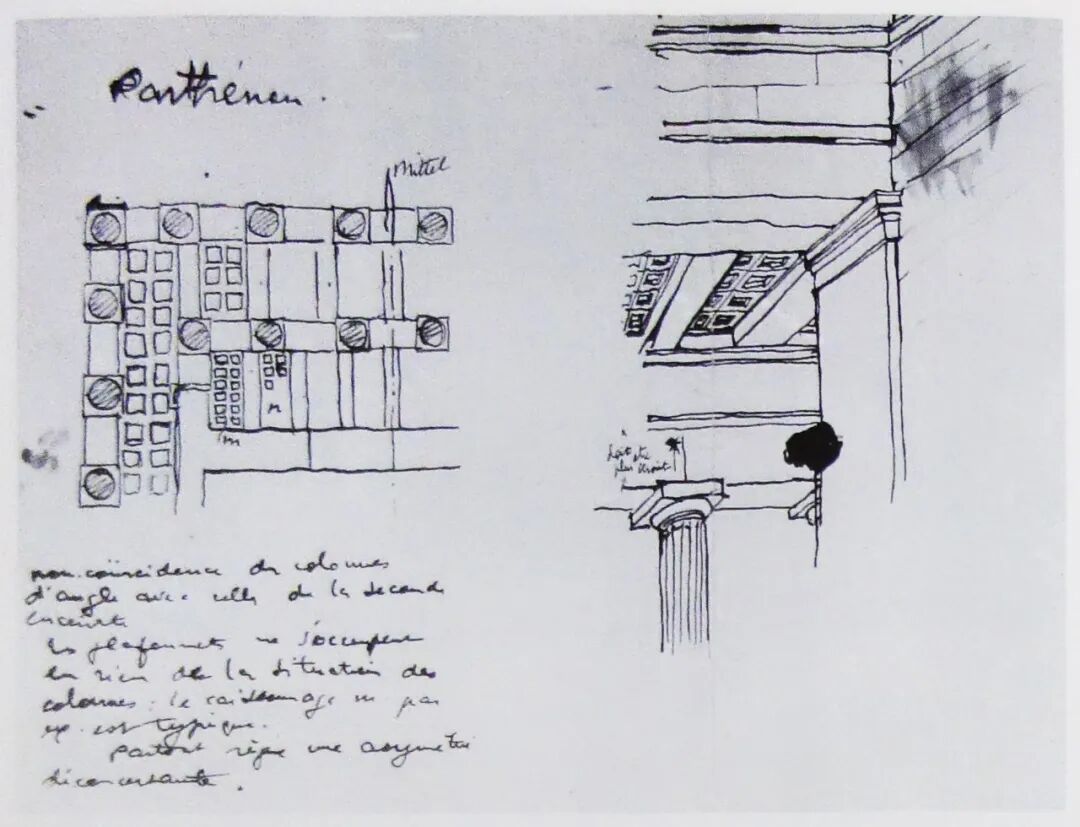 Parthénon.
Mittel
doit être
plus étroit
m
n
non-coïncidence des colonnes
d'angle avec celles de la seconde
enceinte
Les plafonnets ne s'occupent
en rien de la situation des
colonnes : le caissonnage m par
ex. est typique.
Partout règne une asymétrie
déconcertante.